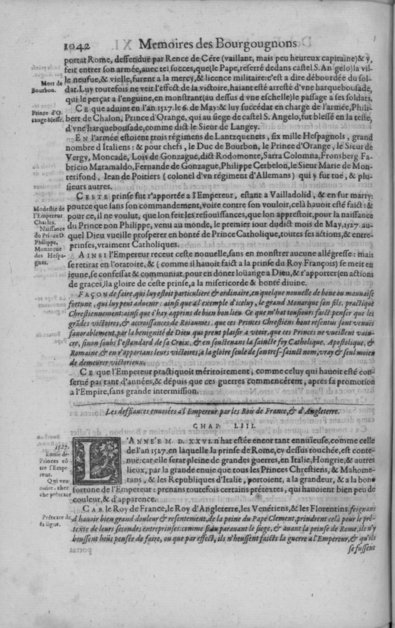 1042 Memoires des Bourgougnons
portat Rome, deffendue par Rence de Cére (vaillant, mais peu heureux capitaine) & y
feit entrer son armée, avec tel succes, que, le Pape, referré dedans castel S. Angelo, la vil-
le neufue, & vielle, furent a la mercy, & licence militaire: c'est a dire débourdée du sol-
Mort de Bourbon.
dat. Luy toutefois ne veit l'effect de la victoire, haiant esté arresté d'vne harquebousade,
qui le perçat a l'enguine, en monstrant (au dessus d'vne eschelle) le passage a ses soldats.
Prince d'Or-
CE que aduient en l'an 1527. le 6. de May: & luy succédat en charge de l'armée, Phili-
bert de Chalon, Prince d'Orange, qui au siege de castel S. Angelo, fut blessé en la teste,
d'vne harquebousade, comme dict le Sieur de Langey.
EN l'armée estoient trois régiments de Lantzquenets, six mille Hespagnols, grand
nombre d'Italiens: & pour chefs, le Duc de Bourbon, le Prince d'Orange, le Sieur de
Vergy, Moncade, Lois de Gonzague, dict Rodomont, Sarra Colonna, Fronsberg, Fa-
bricio Maramaldo, Fernande de Gonzague, Philippe Cerbelon, le Sieur Marie de Mon-
terfond, Iean de Poitiers (colonel d'vn régiment d'Allemans) qui y fut tué, & plu-
sieurs autres.
CESTE prinse fut r'apportée a l'Empereur, estant a Vailladolid, & en fut marry:
Modestie de l'Empereur Charles.
pource que sans son commandement, voire contre son vouloir, celà hauoit esté faict: &
pour ce, il ne voulut, que lon feit les resiouissances, que lon apprestoit, pour la naissance
Naissance de Prince Philippe, Monarque des Hespagnes.
du Prince don Philippe, venu au monde, le premier iour dudict mois de May, 1527. au-
quel Dieu vueille prosperer en bonté de Prince Catholique, toutes ses actions, & entre-
prinses, vraiment Catholiques.
AINSI l'Empereur receut ceste nouuelle, sans en monstrer aucune allégresse: mais
se retirat en l'oratoire, & (comme il hauoit faict a la prinse du Roy François) se meit en
jeune, se confessat & communiat, pour en donner loüange a Dieu, & r'apporter (en actions
de graces) la gloire de ceste prinse, a la misericorde & bonté diuine.
FAÇON de faire, qui luy estoit particuliere & ordinaire, en quelque nouuelle de bonne ou mauuaise
fortune, qui luy peut aduenir: ainsi que a l'exemple d'iceluy, le grand Monarque son fils, practique
Chrestiennement: ainsi que i'hay apprins de bien bon lieu.
les graces victoires, & accroissances de Roiaumes, que ces Princes Chrestiens hont
fauorablement, par la benignité de Dieu
cer, sinon soubs l'estandard de sa Croix, & en soustenant la saincte foy Catholique, Apostolique, &
Romaine, & en r'apportans leurs victoires, a la gloire seule de son tressainct nom, vray & seul moien
de demeurer victorieux.
CE que l'Empereur practiquoit méritoirement, comme celuy qui hauoit esté con-
serué par tant d'années, & dépuis que ces guerres commencérent, après sa promotion
a l'Empire, sans grande intermission.
Les deffiances enuoiées a l'Empereur, par les Rois de France, & d'Angleterre.
CHAP. LIII.
1527.
L'ANNEE M. D. XXVI. n'hat estée encor tant ennuieuse, comme celle
de l'an 1527. en laquelle la prinse de Rome, cy dessus touchée, est conte-
nue: car elle feit grande de grandes guerres, en Italie, Hongrie, & autres
lieux, par la grande enuie que tous les Princes Chrestiens, & Mahome-
tans, & les Republiques d'Italie, portoient, a la grandeur, & a la bonne
fortune de l'Empereur: prenans toutefois certains prétextes, qui hauoient bien peu de
couleur, & d'apparence.
CAR le Roy de France, le Roy d'Angleterre, les Venétiens, & les Florentins, feignans
d'hauoir bien grand douleur & resentement, de la peine du Pape Clement, prindrent celà pour le pré-
texte de leurs secondes entreprinses: comme si au parauant le siege, & auant la prinse de Rome, ilz n'y
houssent heüs pensée de faire, ou que par effect, ils n'houssent faicts la guerre a l'Empereur, & qu'ils
se fussent